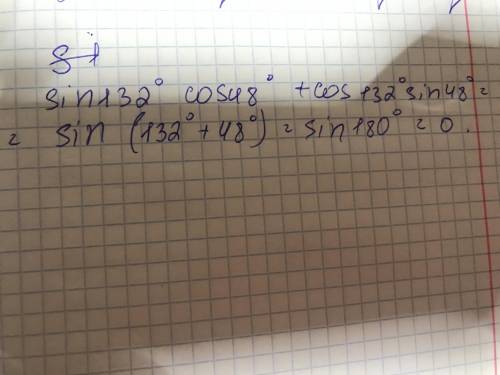 sin132° cos48° + cos132° sin48° =
= sin (132° + 48°) = sin 180° = 0.